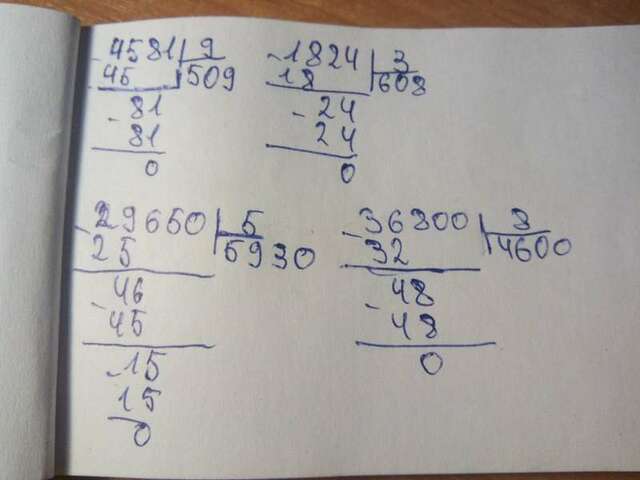 -4581 9
45 509
-81
81
0
-1824 3
18 608
-24
24
0
-29650 5
25 5930
-46
45
-15
15
0
-36800 8
32 4600
-48
48
0